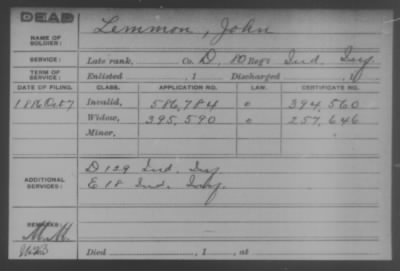 DEAD
NAME OF SOLDIER: Lemmon, John
SERVICE: Late rank, Co. D, 80 Reg't Ind. Inf.
TERM OF SERVICE: Enlisted , 1 Discharged , 1
DATE OF FILING. CLASS. APPLICATION NO. LAW. CERTIFICATE NO.
1886 Oct 7 Invalid, 586,784 " 394,560
Widow, 395,590 " 257,646
Minor,
ADDITIONAL SERVICES: D 129 Ind. Inf
E 18 Ind. Inf.
REMARKS:
M.M.
Died , 1 , at